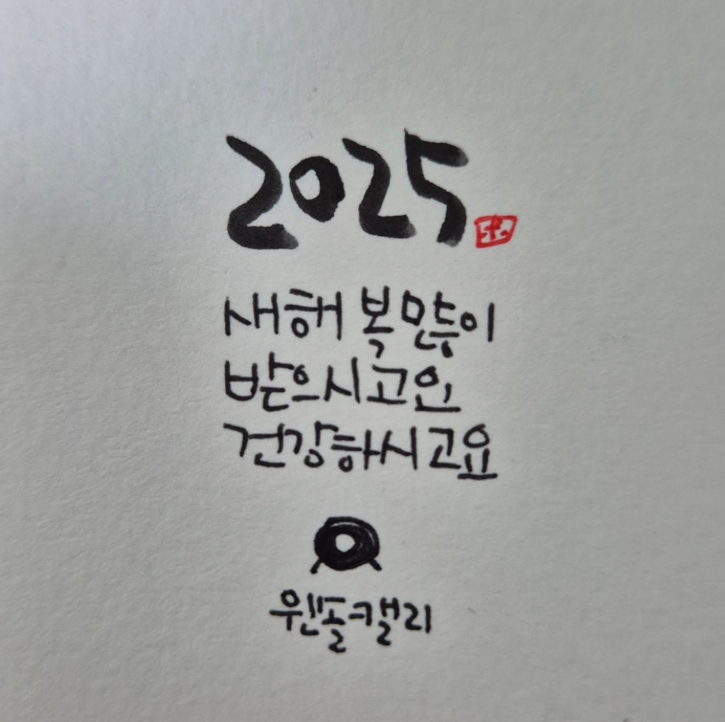 2025
새해 복 많이
받으시고요
건강하시고요
웬돌캘리